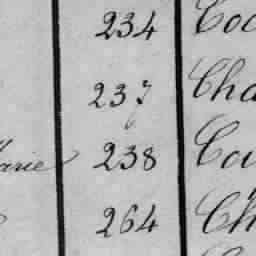 234 Coc
237 Cha
arie 238 Cou
264 Ch